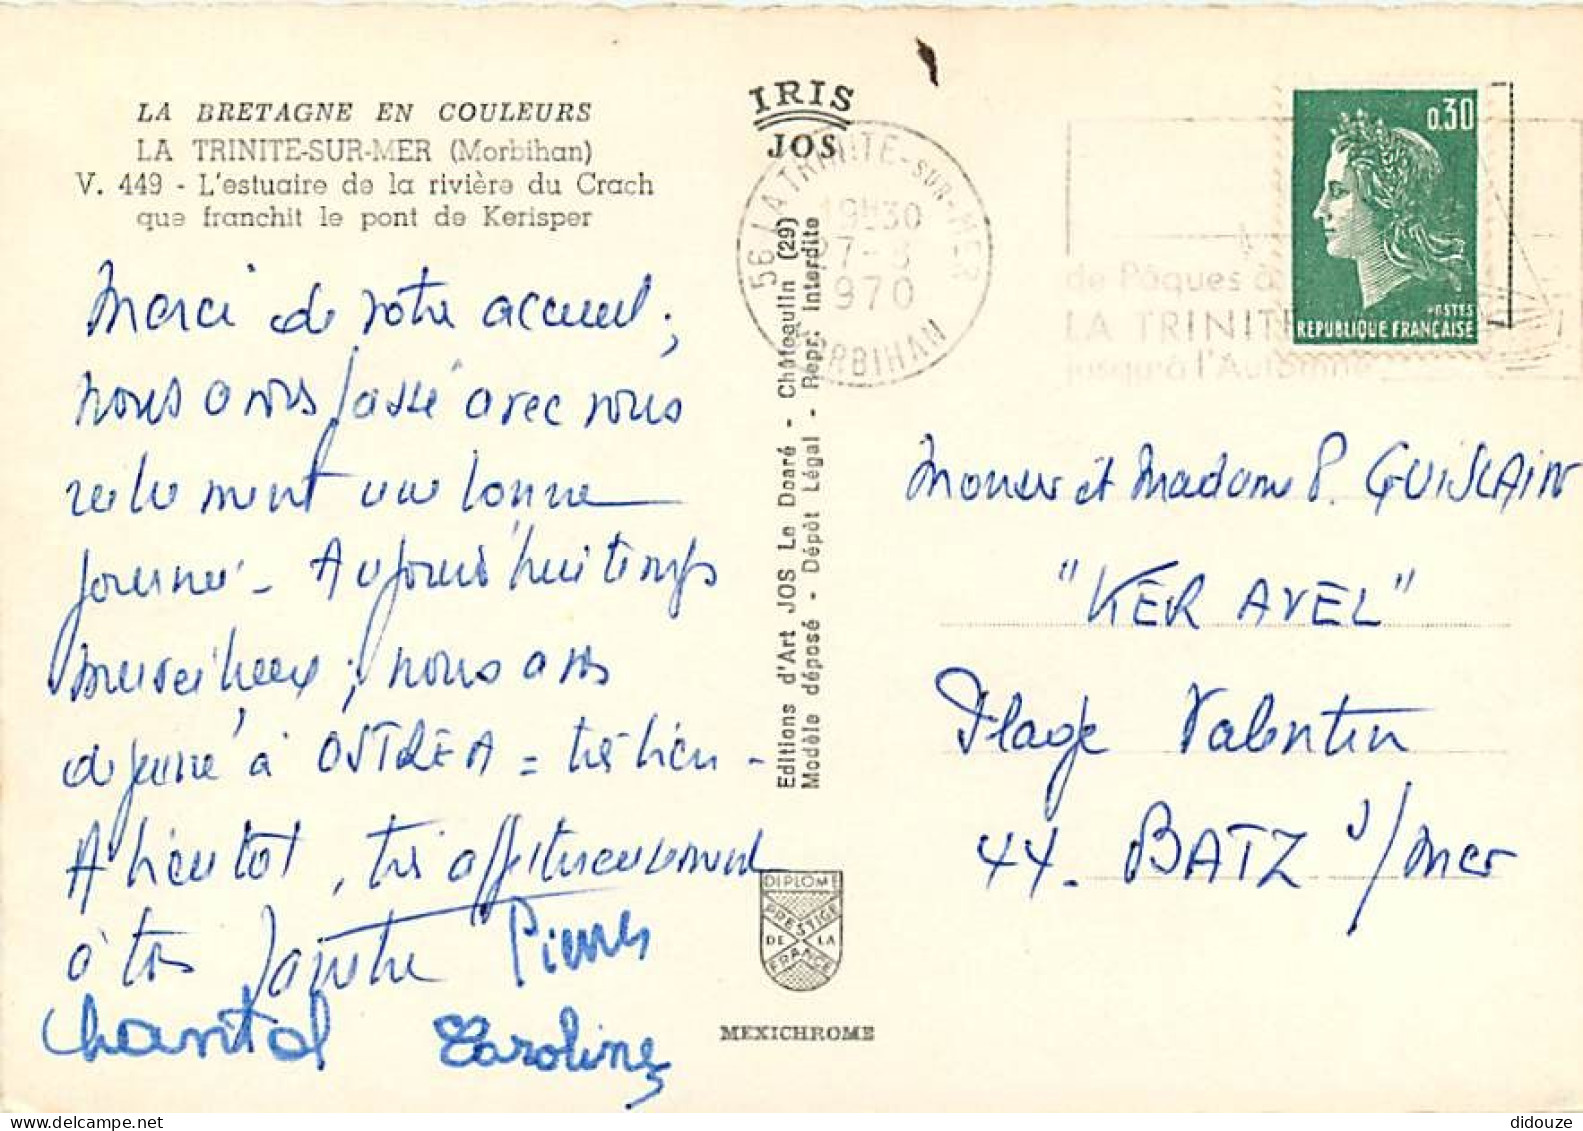 LA BRETAGNE EN COULEURS
LA TRINITE-SUR-MER (Morbihan)
V. 449 - L'estuaire de la rivière du Crach
que franchit le pont de Kerisper
Merci de votre accueil ;
nous avons passé avec vous
réellement une bonne
journée - Aujourd'hui temps
merveilleux ; nous avons
dejeuné à OSTREA = très bien -
A bientôt, très affectueusement
à tous
Pierre
Chantal Caroline
IRIS
JOS
Editions d'Art JOS Le Doaré - Châteaulin (29)
Modèle déposé - Dépôt Légal - Repr. Interdite
DIPLOME
PRESTIGE
DE LA
FRANCE
MEXICHROME
56 LA TRINITE-SUR-MER
19H30
27-3
1970
MORBIHAN
de Pâques à
LA TRINITE
jusqu'à l'Automne
0,30
POSTES
REPUBLIQUE FRANÇAISE
Monsieur et Madame P. GUISLAIN
"KER AVEL"
Plage Valentin
44. BATZ s/mer
didouze